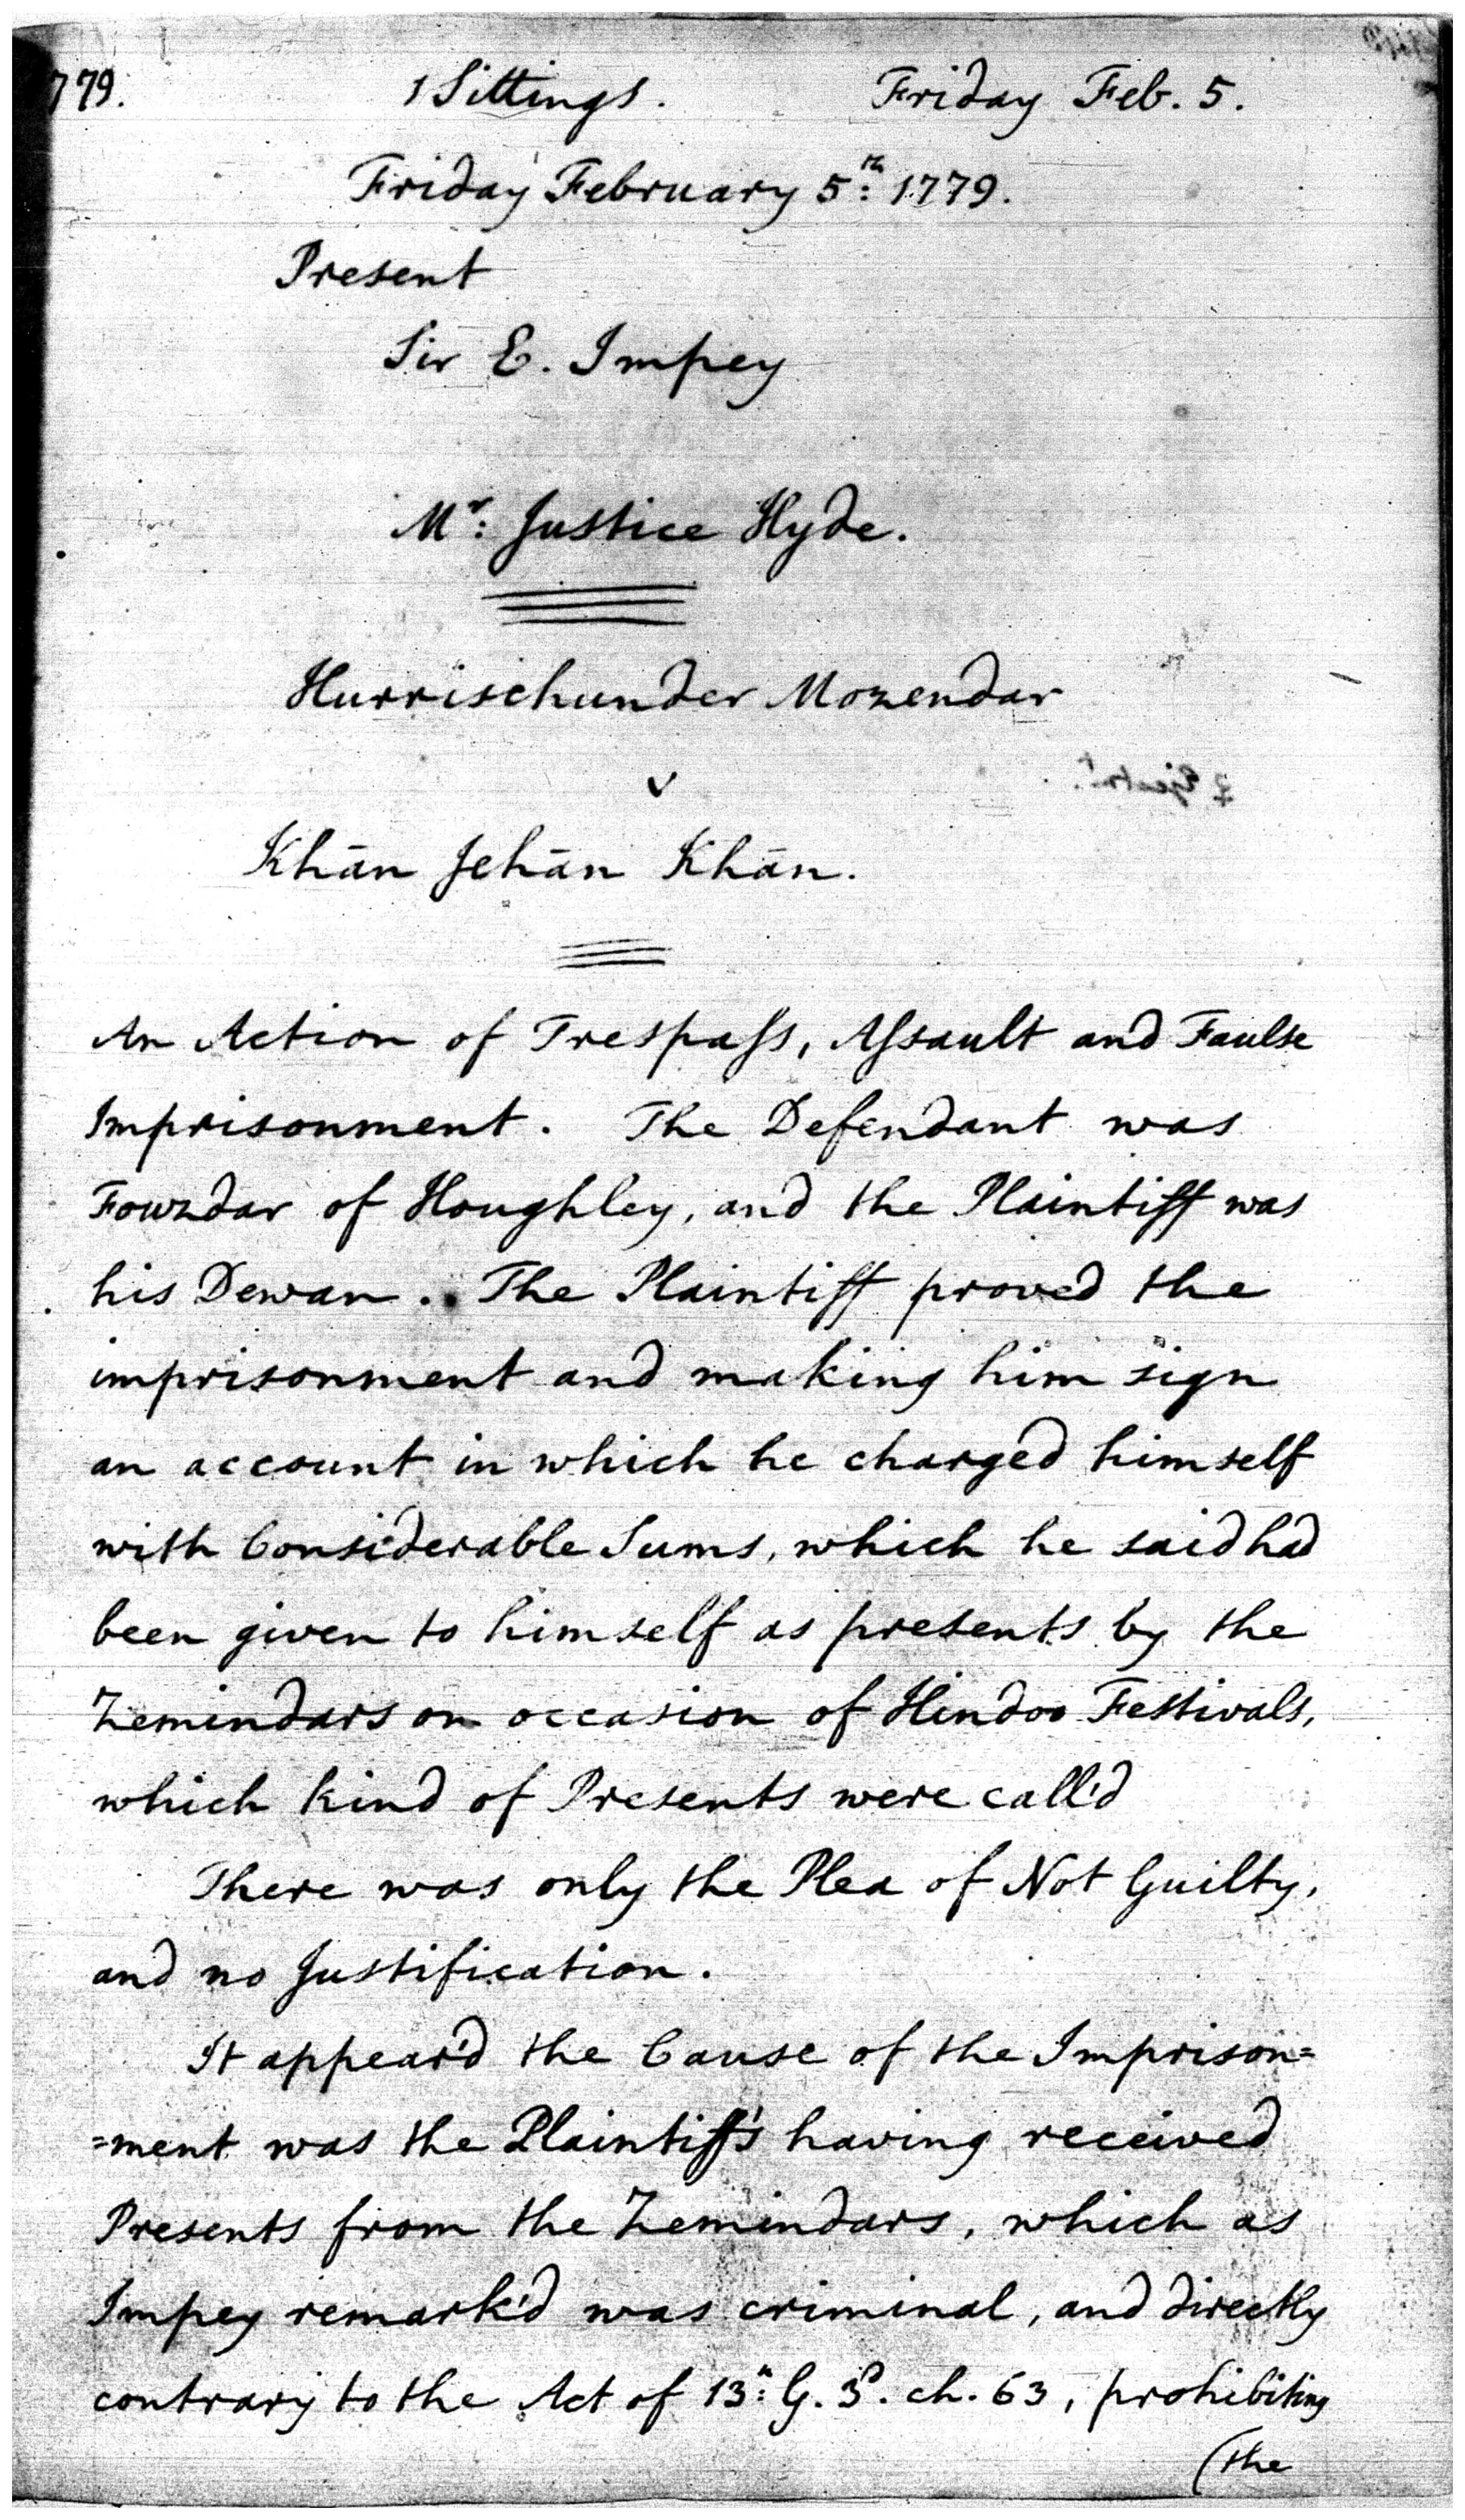 779. Sittings. Friday Feb. 5.
Friday February 5th: 1779.
Present
Sir E. Impey
Mr: Justice Hyde.
Hurrischunder Mozendar
v
Khān Jehān Khān.
An Action of Trespaſs, Aſsault and Faulse
Imprisonment. The Defendant was
Fowzdar of Houghley, and the Plaintiff was
his Dewan. The Plaintiff proved the
imprisonment and making him sign
an account in which he charged himself
with Considerable Sums, which he said had
been given to himself as presents by the
Zemindars on occasion of Hindoo Festivals,
which kind of Presents were call'd
There was only the Plea of Not Guilty,
and no Justification.
It appear'd the Cause of the Imprison=
=ment was the Plaintiff's having received
Presents from the Zemindars, which as
Impey remark'd was criminal, and directly
contrary to the Act of 13th: G. 3d. ch. 63, prohibiting
(the